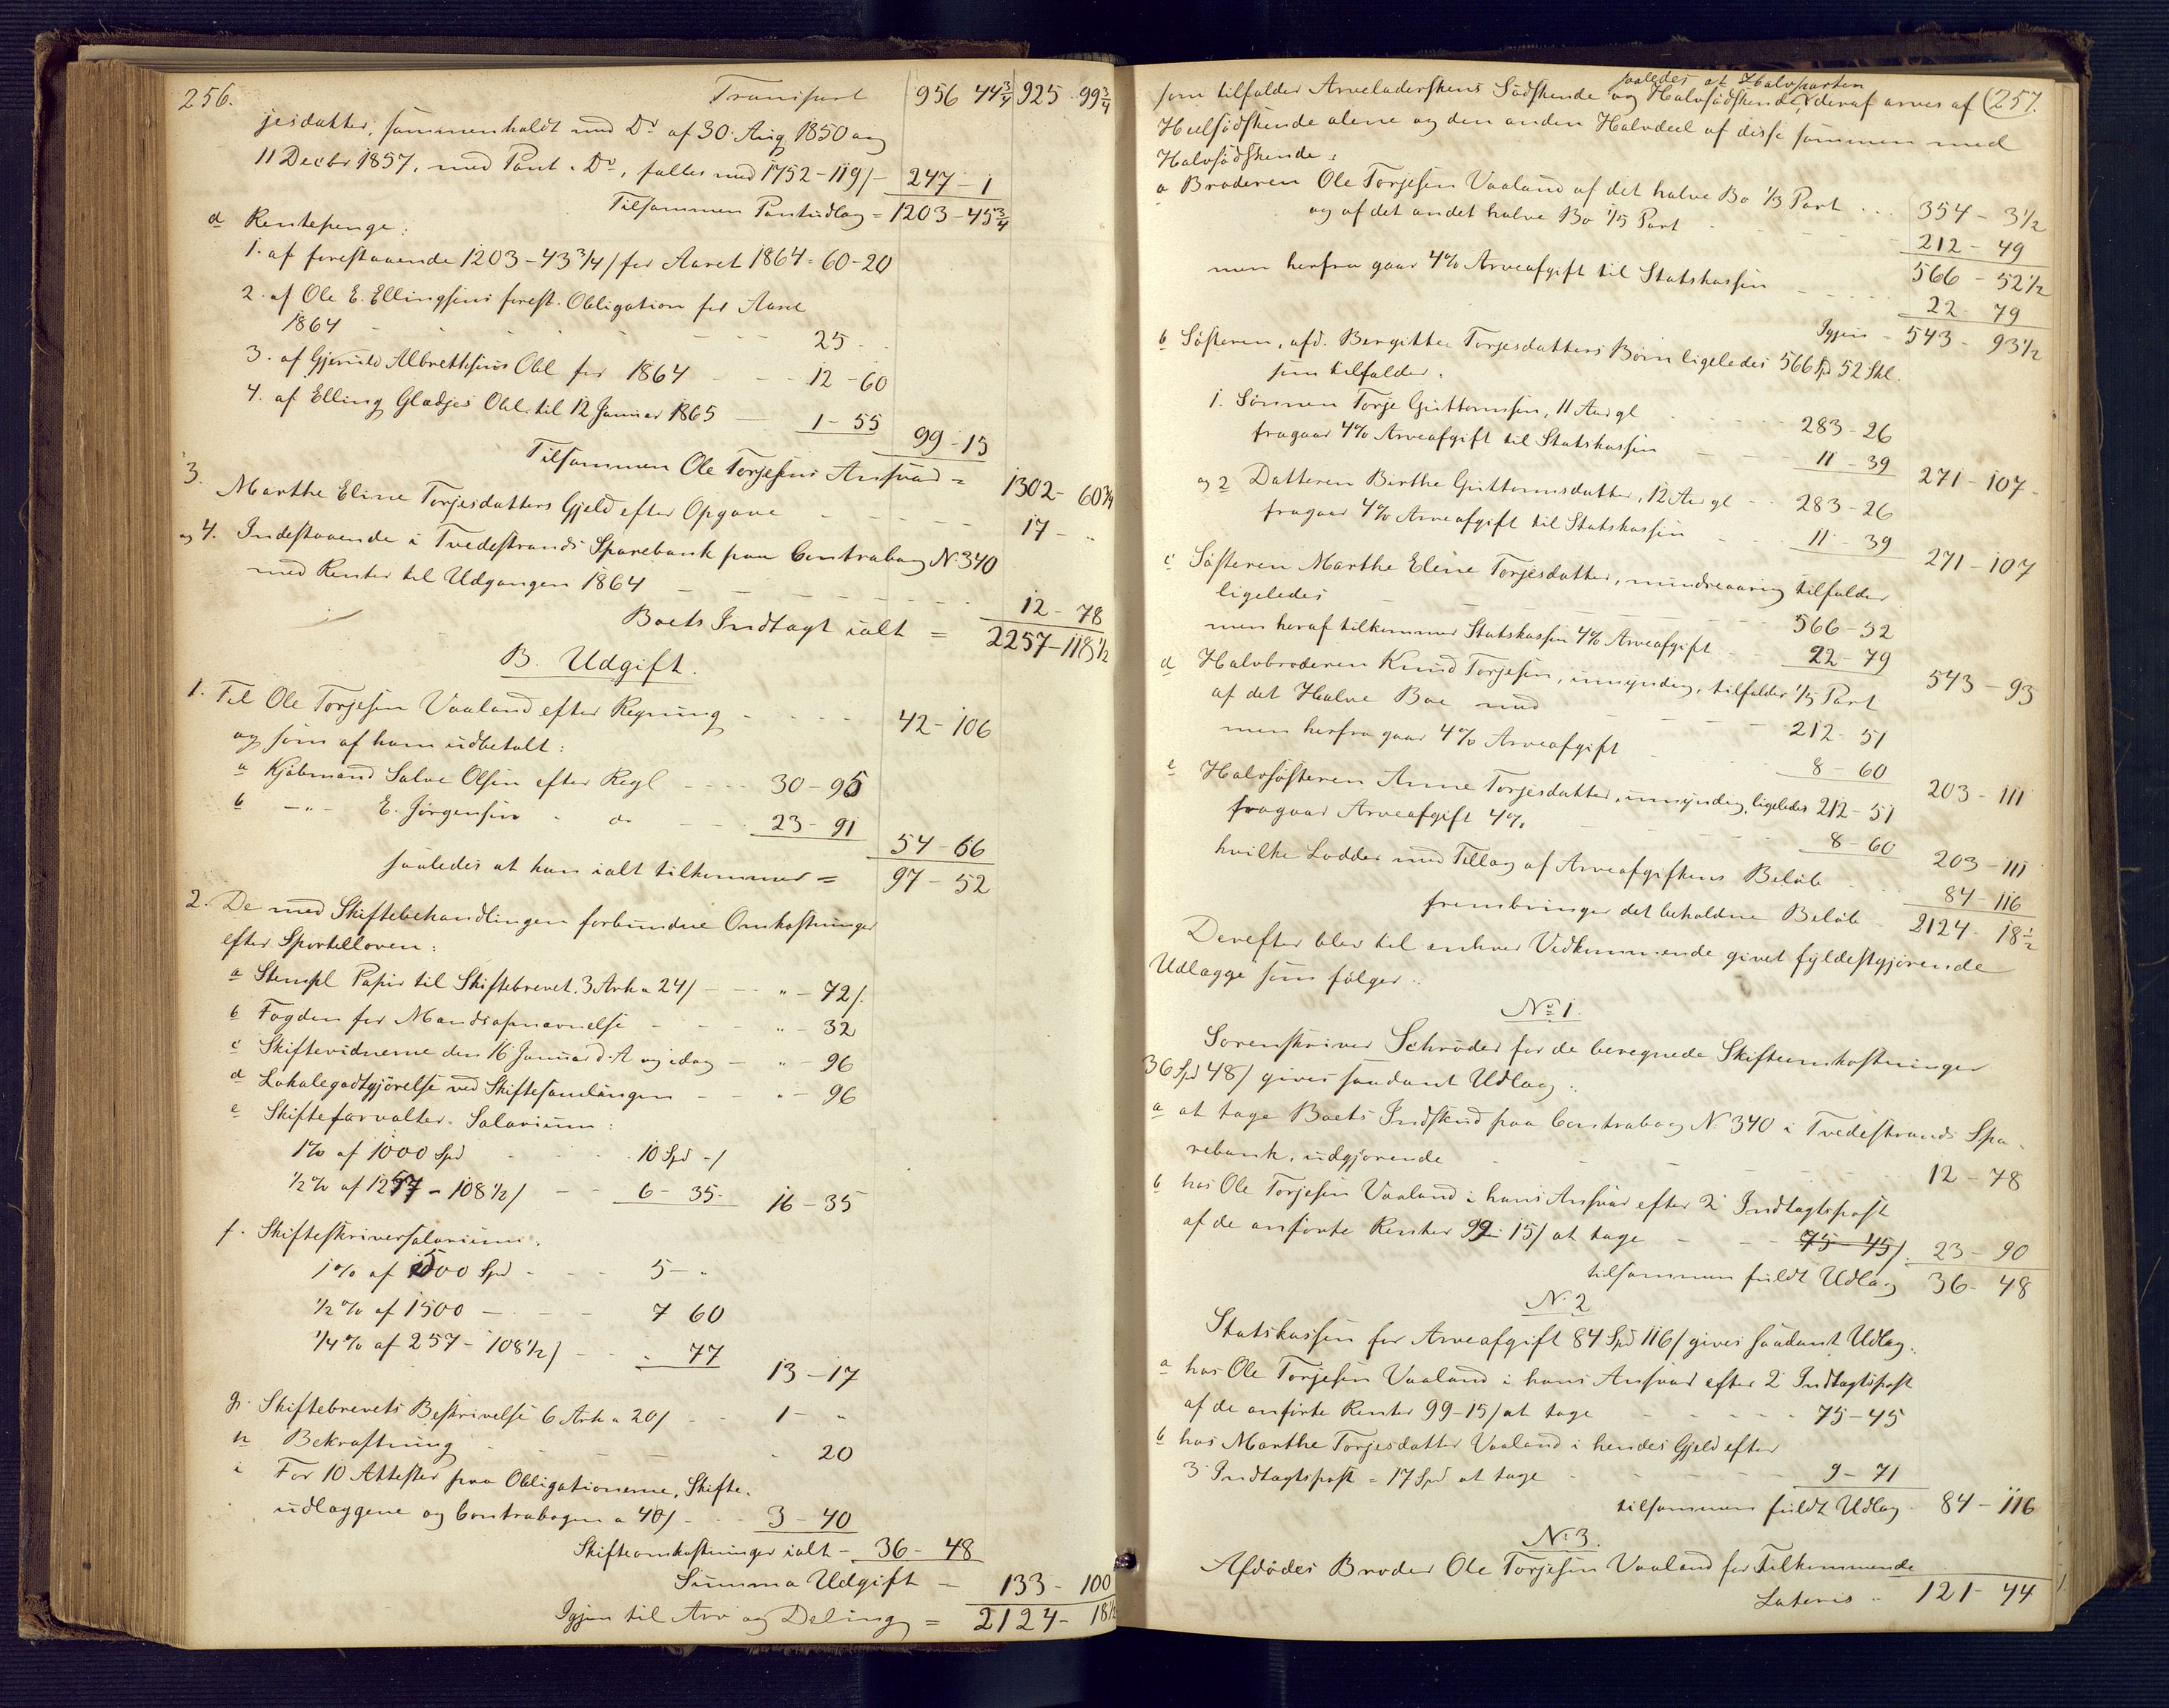 256.
Transport 956 44 3/4 925 99 3/4
jesdatter, sammenholdt med Do af 30 Aug 1850 og
11 Decbr 1857, med Pant i Do, fælles med 1752-119/- 247-1
Tilsammen Pantudlæg = 1203-45 3/4
d Rentepenge:
1. af forestaaende 1203-43 3/4/ for Aaret 1864 = 60-20
2. af Ole E. Ellingsens forest. Obligation for Aaret
1864 - - - 25 - -
3. af Gjeruld Albrethsens Obl for 1864 - - - 12-60
4. af Elling Gladjes Obl. til 12 Januar 1865 - 1-55
99-15
Tilsammen Ole Torjesens Ansvar = 1302-60 3/4
3. Marthe Eline Torjesdatters Gjeld efter Opgave - - - 17- "
og 4. Indestaaende i Tvedestrands Sparebank paa Contrabog N. 340
med Renter til Udgangen 1864 - - - 12-78
Boets Indtægt ialt = 2257-118 1/2
B. Udgift.
1. Til Ole Torjesen Vaaland efter Regning - - - 42-106
og som af ham udbetalt:
a Kjøbmand Salve Olsen efter Regl - - - 30-95
b -"- E. Jørgensen - do - - 23-91
54-66
saaledes at han ialt tilkommer = 97-52
2. De med Skiftebehandlingen forbundne Omkostninger
efter Sportelloven:
a Stempl Papir til Skiftebrevet. 3 Ark a 24/ - - " - 72/.
b Fogden for Mandsopnævnelse - - - " - 32
c Skiftevidnerne den 16 Januar d. A og idag - " - 96
d Lokalegodtgjørelse ved Skiftesamlingen - - " - 96
e Skifteforvalter-Salarium:
1% af 1000 Spd - - - 10 Spd -/
1/2% af 1257-108 1/2/ - - 6-35- 16-35
f. Skifteskriversalarium.
1% af 500 Spd - - - 5- "
1/2% af 1500 - - - 7 60
1/4% af 257-108 1/2/ - - . 77
13-17
g. Skiftebrevets Beskrivelse 6 Ark a 20/ - - 1- "
h Bekræftning - - - 20
i For 10 Attester paa Obligationerne, Skifte-
udlæggene og Contrabogen a 40/ - - 3-40
Skifteomkostninger ialt - 36-48
Summa Udgift = 133-100
Igjen til Arv og Deling = 2124-18 1/2
257.
saaledes at Halvparten
som tilfalder Arveladerskens Sødskende og Halvsødskende, deraf arves af
Heelsødskende alene og den anden Halvdeel af disse sammen med
Halvsødskende:
a Broderen Ole Torjesen Vaaland af det halve Bo 1/3 Part ... 354-3 1/2
og af det andet halve Bo 1/5 Part - - - 212-49
566-52 1/2
men herfra gaar 4% Arveafgift til Statskassen - - - 22-79
Igjen - 543-93 1/2
b Søsteren, afd. Bergitte Torjesdatters Børn ligeledes 566 Spd 52 Skl.
som tilfalder:
1. Sønnen Torje Guttormsen, 11 Aar gl - - - 283-26
fragaar 4% Arveafgift til Statskassen - - - 11-39
271-107-
og 2 Datteren Birthe Guttormsdatter, 12 Aar gl - - 283-26
fragaar 4% Arveafgift til Statskassen - - 11-39
271-107
c Søsteren Marthe Eline Torjesdatter, mindreaarig tilfalder
ligeledes - - - 566-52
men heraf tilkommer Statskassen 4% Arveafgift - - 22-79
543-93
d Halvbroderen Knud Torjesen, umyndig, tilfalder 1/5 Part
af det Halve Boe med - - - 212-51
men herfra gaar 4% Arveafgift - - 8-60
203-111
e Halvsøsteren Anne Torjesdatter, umyndig, ligeledes 212-51
fragaar Arveafgift 4% - - - 8-60
203-111
hvilke Lodder med Tillæg af Arveafgiftens Beløb - - 84-116
frembringer det beholdne Beløb - 2124-18 1/2
Derefter blev til enhver Vedkommende givet fyldestgjørende
Udlægge som følger:
No 1.
Sorenskriver Schrøder for de beregnede Skifteomkostninger
36 Spd 48/ gives saadant Udlæg:
a at tage Boets Indskud paa Contrabog N. 340 i Tvedestrands Spa-
rebank, udgjørende - - - 12-78
b hos Ole Torjesen Vaaland i hans Ansvar efter 2 Indtægtspost
af de anførte Renter 99-15/ at tage - - 75-45/. 23-90
tilsammen fuldt Udlæg 36-48
N. 2
Statskassen for Arveafgift 84 Spd 116/ gives saadant Udlæg:
a hos Ole Torjesen Vaaland i hans Ansvar efter 2 Indtægtspost
af de anførte Renter 99-15/ at tage - - - 75-45
b hos Marthe Torjesdatter Vaaland i hendes Gjeld efter
3 Indtægtspost = 17 Spd at tage - - - 9-71
tilsammen fuldt Udlæg - 84-116
N. 3.
Afdødes Broder Ole Torjesen Vaaland for Tilkommende
Lateris - 121-44